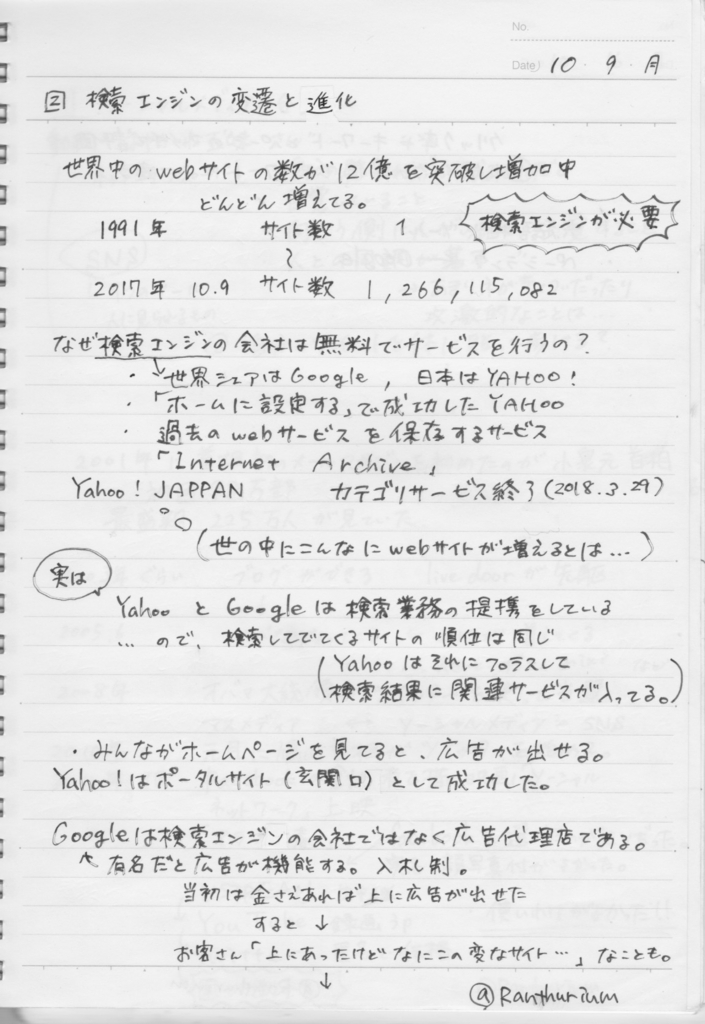 No.
Date) 10 ・ 9 ・ 月
② 検索エンジンの変遷と進化
世界中のwebサイトの数が12億を突破し増加中
どんどん増えてる。
1991年 サイト数 1
検索エンジンが必要
〜
2017年 10.9 サイト数 1,266,115,082
なぜ検索エンジンの会社は無料でサービスを行うの?
・世界シェアはGoogle, 日本はYAHOO!
・「ホームに設定する」で成功したYAHOO
・過去のwebサービスを保存するサービス
「Internet Archive」
Yahoo! JAPPAN カテゴリサービス終了(2018.3.29)
(世の中にこんなにwebサイトが増えるとは…)
実は
YahooとGoogleは検索業務の提携をしている
…ので、検索してでてくるサイトの順位は同じ
(Yahooはそれにプラスして
検索結果に関連サービスが入ってる。)
・みんながホームページを見てると、広告が出せる。
Yahoo!はポータルサイト(玄関口)として成功した。
Googleは検索エンジンの会社ではなく広告代理店である。
有名だと広告が機能する。入札制。
当初は金さえあれば上に広告が出せた
すると ↓
お客さん「上にあったけどなにこの変なサイト…」なことも。
↓
@Ranthurium